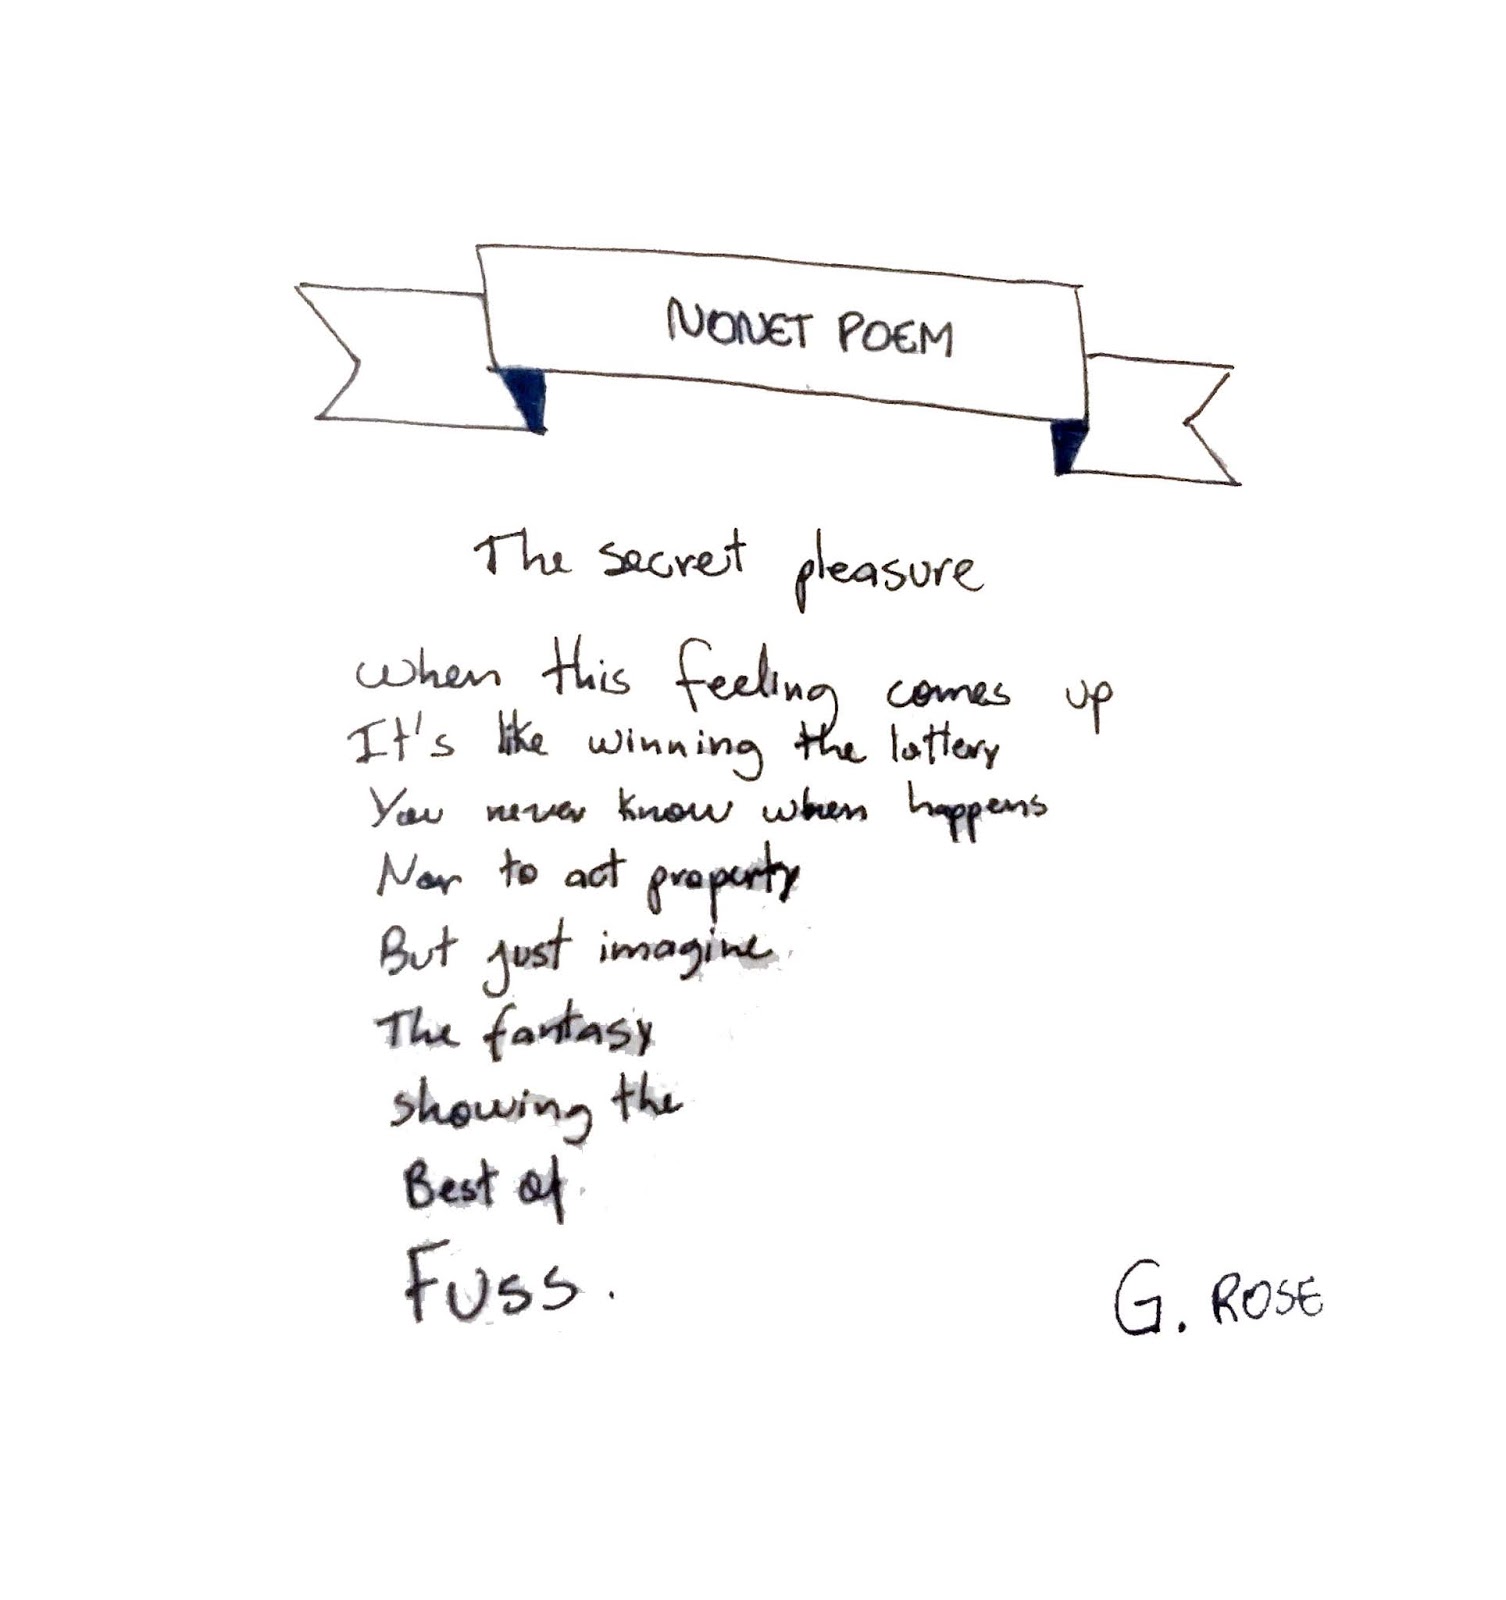 NONET POEM
The secret pleasure
When this feeling comes up
It's like winning the lottery
You never know when happens
Nor to act property
But just imagine
The fantasy
showing the
Best of
Fuss.
G. ROSE